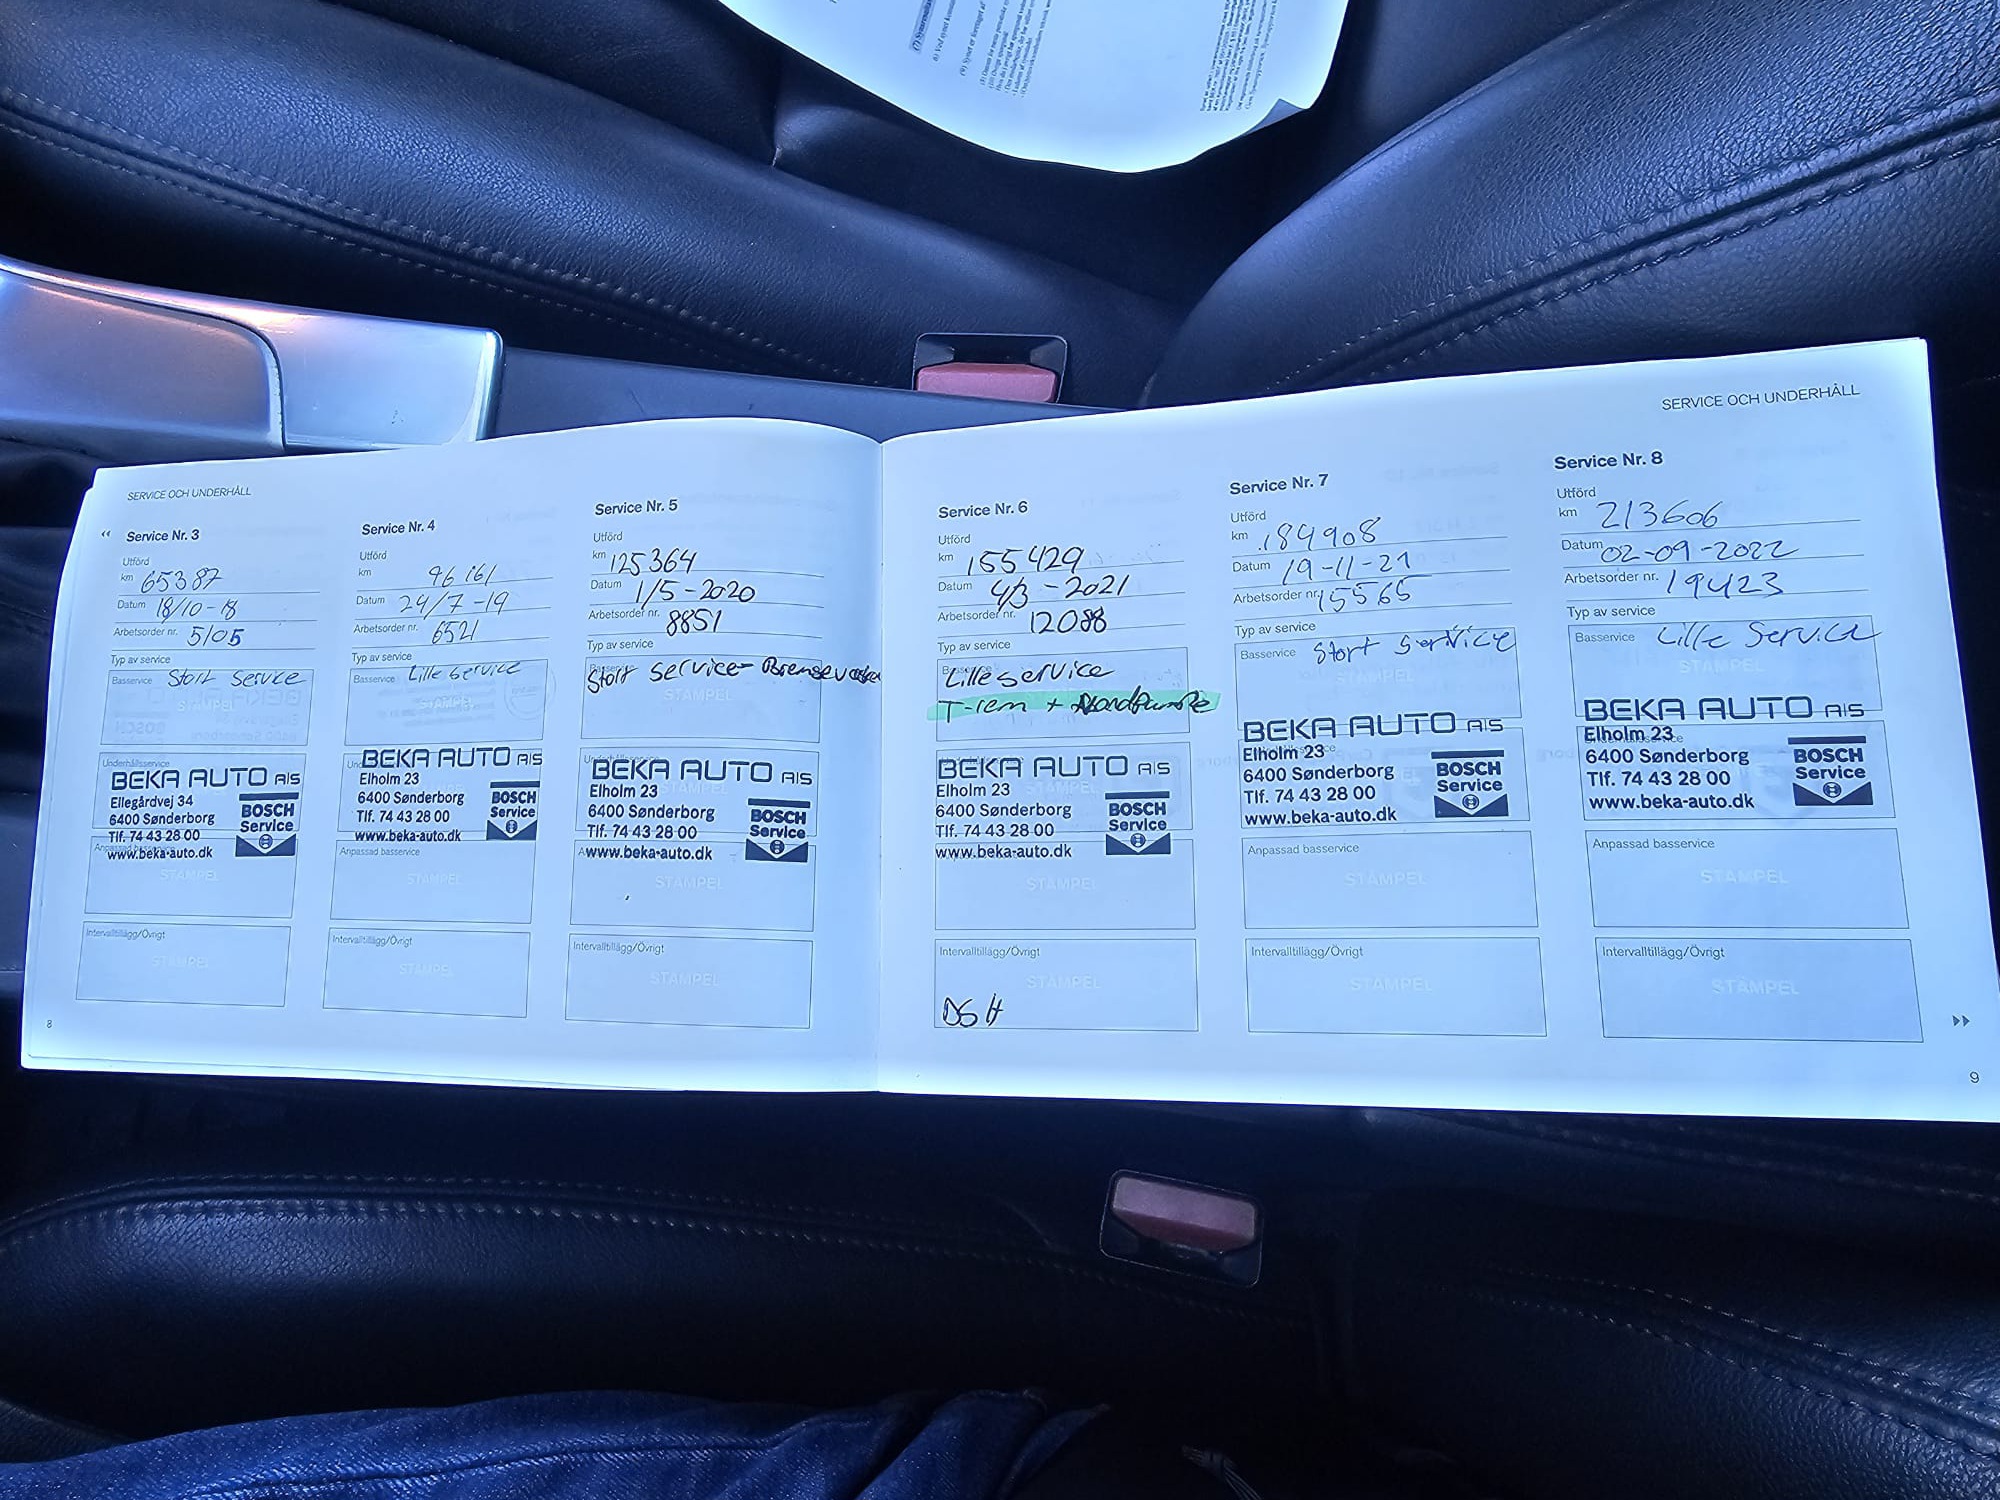 SERVICE OCH UNDERHÅLL
Service Nr. 3
Utförd
km 65387
Datum 18/10-18
Arbetsorder nr. 5105
Typ av service
Basservice Stort Service
STÄMPEL
Underhållsservice
BEKA AUTO A/S
Ellegårdvej 34
6400 Sønderborg
Tlf. 74 43 28 00
www.beka-auto.dk
BOSCH
Service
Anpassad basservice
STÄMPEL
Intervalltillägg/Övrigt
STÄMPEL
8
Service Nr. 4
Utförd
km 96161
Datum 24/7-19
Arbetsorder nr. 6521
Typ av service
Basservice Lille service
STÄMPEL
BEKA AUTO A/S
Elholm 23
6400 Sønderborg
Tlf. 74 43 28 00
www.beka-auto.dk
BOSCH
Service
Anpassad basservice
STÄMPEL
Intervalltillägg/Övrigt
STÄMPEL
Service Nr. 5
Utförd
km 125364
Datum 1/5-2020
Arbetsorder nr. 8851
Typ av service
Basservice
Stort Service-
STÄMPEL
BEKA AUTO A/S
Elholm 23
6400 Sønderborg
Tlf. 74 43 28 00
www.beka-auto.dk
BOSCH
Service
STÄMPEL
Intervalltillägg/Övrigt
STÄMPEL
SERVICE OCH UNDERHÅLL
Service Nr. 6
Utförd
km 155429
Datum 4/3-2021
Arbetsorder nr. 12088
Typ av service
Basservice
Lille service
T-rem +
BEKA AUTO A/S
Elholm 23
6400 Sønderborg
Tlf. 74 43 28 00
www.beka-auto.dk
BOSCH
Service
STÄMPEL
Intervalltillägg/Övrigt
STÄMPEL
DSH
Service Nr. 7
Utförd
km 184908
Datum 19-11-21
Arbetsorder nr. 15565
Typ av service
Basservice Stort service
STÄMPEL
BEKA AUTO A/S
Elholm 23
6400 Sønderborg
Tlf. 74 43 28 00
www.beka-auto.dk
BOSCH
Service
Anpassad basservice
STÄMPEL
Intervalltillägg/Övrigt
STÄMPEL
Service Nr. 8
Utförd
km 213606
Datum 02-09-2022
Arbetsorder nr. 19423
Typ av service
Basservice Lille Service
STÄMPEL
BEKA AUTO A/S
Elholm 23
6400 Sønderborg
Tlf. 74 43 28 00
www.beka-auto.dk
BOSCH
Service
Anpassad basservice
STÄMPEL
Intervalltillägg/Övrigt
STÄMPEL
9